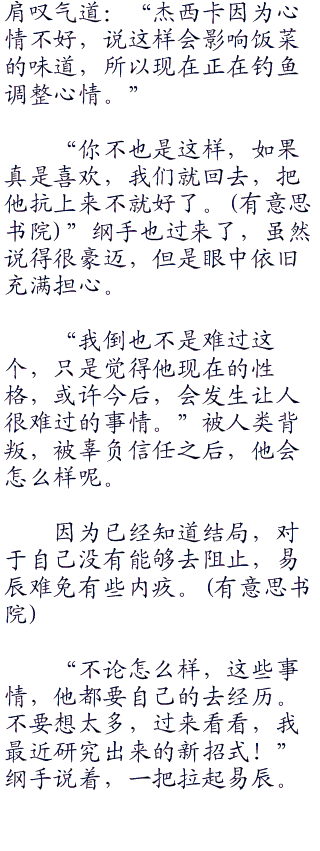 肩叹气道：“杰西卡因为心
情不好，说这样会影响饭菜
的味道，所以现在正在钓鱼
调整心情。”
“你不也是这样，如果
真是喜欢，我们就回去，把
他抗上来不就好了。(有意思
书院)”纲手也过来了，虽然
说得很豪迈，但是眼中依旧
充满担心。
“我倒也不是难过这
个，只是觉得他现在的性
格，或许今后，会发生让人
很难过的事情。”被人类背
叛，被辜负信任之后，他会
怎么样呢。
因为已经知道结局，对
于自己没有能够去阻止，易
辰难免有些内疚。(有意思书
院)
“不论怎么样，这些事
情，他都要自己的去经历。
不要想太多，过来看看，我
最近研究出来的新招式！”
纲手说着，一把拉起易辰。